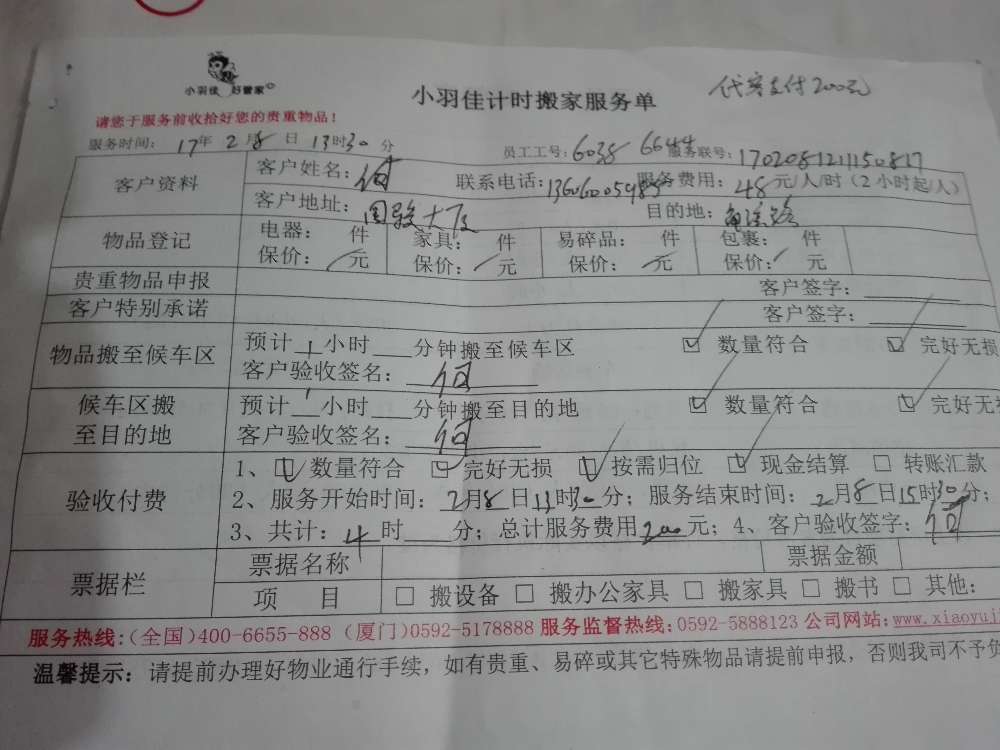 小羽佳 好管家
小羽佳计时搬家服务单
代客支付200元
请您于服务前收拾好您的贵重物品！
服务时间： 17年 2月8日 13时30分
员工工号：6038 6644 服务联号：1702081211150817
客户资料
客户姓名：何 联系电话： 服务费用：48元/人/时（2小时起/人）
客户地址：国骏大厦 目的地：
物品登记
电器： 件 家具： 件 易碎品： 件 包裹： 件
保价：/元 保价：/元 保价：/元 保价：/元
贵重物品申报 客户签字：
客户特别承诺 客户签字：
物品搬至候车区
预计1小时 分钟搬至候车区 ☑ 数量符合 ☑ 完好无损
客户验收签名：何
候车区搬
至目的地
预计1小时 分钟搬至目的地 ☑ 数量符合 ☑ 完好无
客户验收签名：何
验收付费
1、☑ 数量符合 ☑ 完好无损 ☑ 按需归位 ☑ 现金结算 □ 转账汇款
2、服务开始时间：2月8日13时30分；服务结束时间：2月8日15时30分；
3、共计：4时 分；总计服务费用200元；4、客户验收签字：何
票据栏
票据名称 票据金额
项 目 □ 搬设备 □ 搬办公家具 □ 搬家具 □ 搬书 □ 其他：
服务热线：（全国）400-6655-888（厦门）0592-5178888 服务监督热线：0592-5888123 公司网站：www.xiaoyuj
温馨提示：请提前办理好物业通行手续，如有贵重、易碎或其它特殊物品请提前申报，否则我司不予负